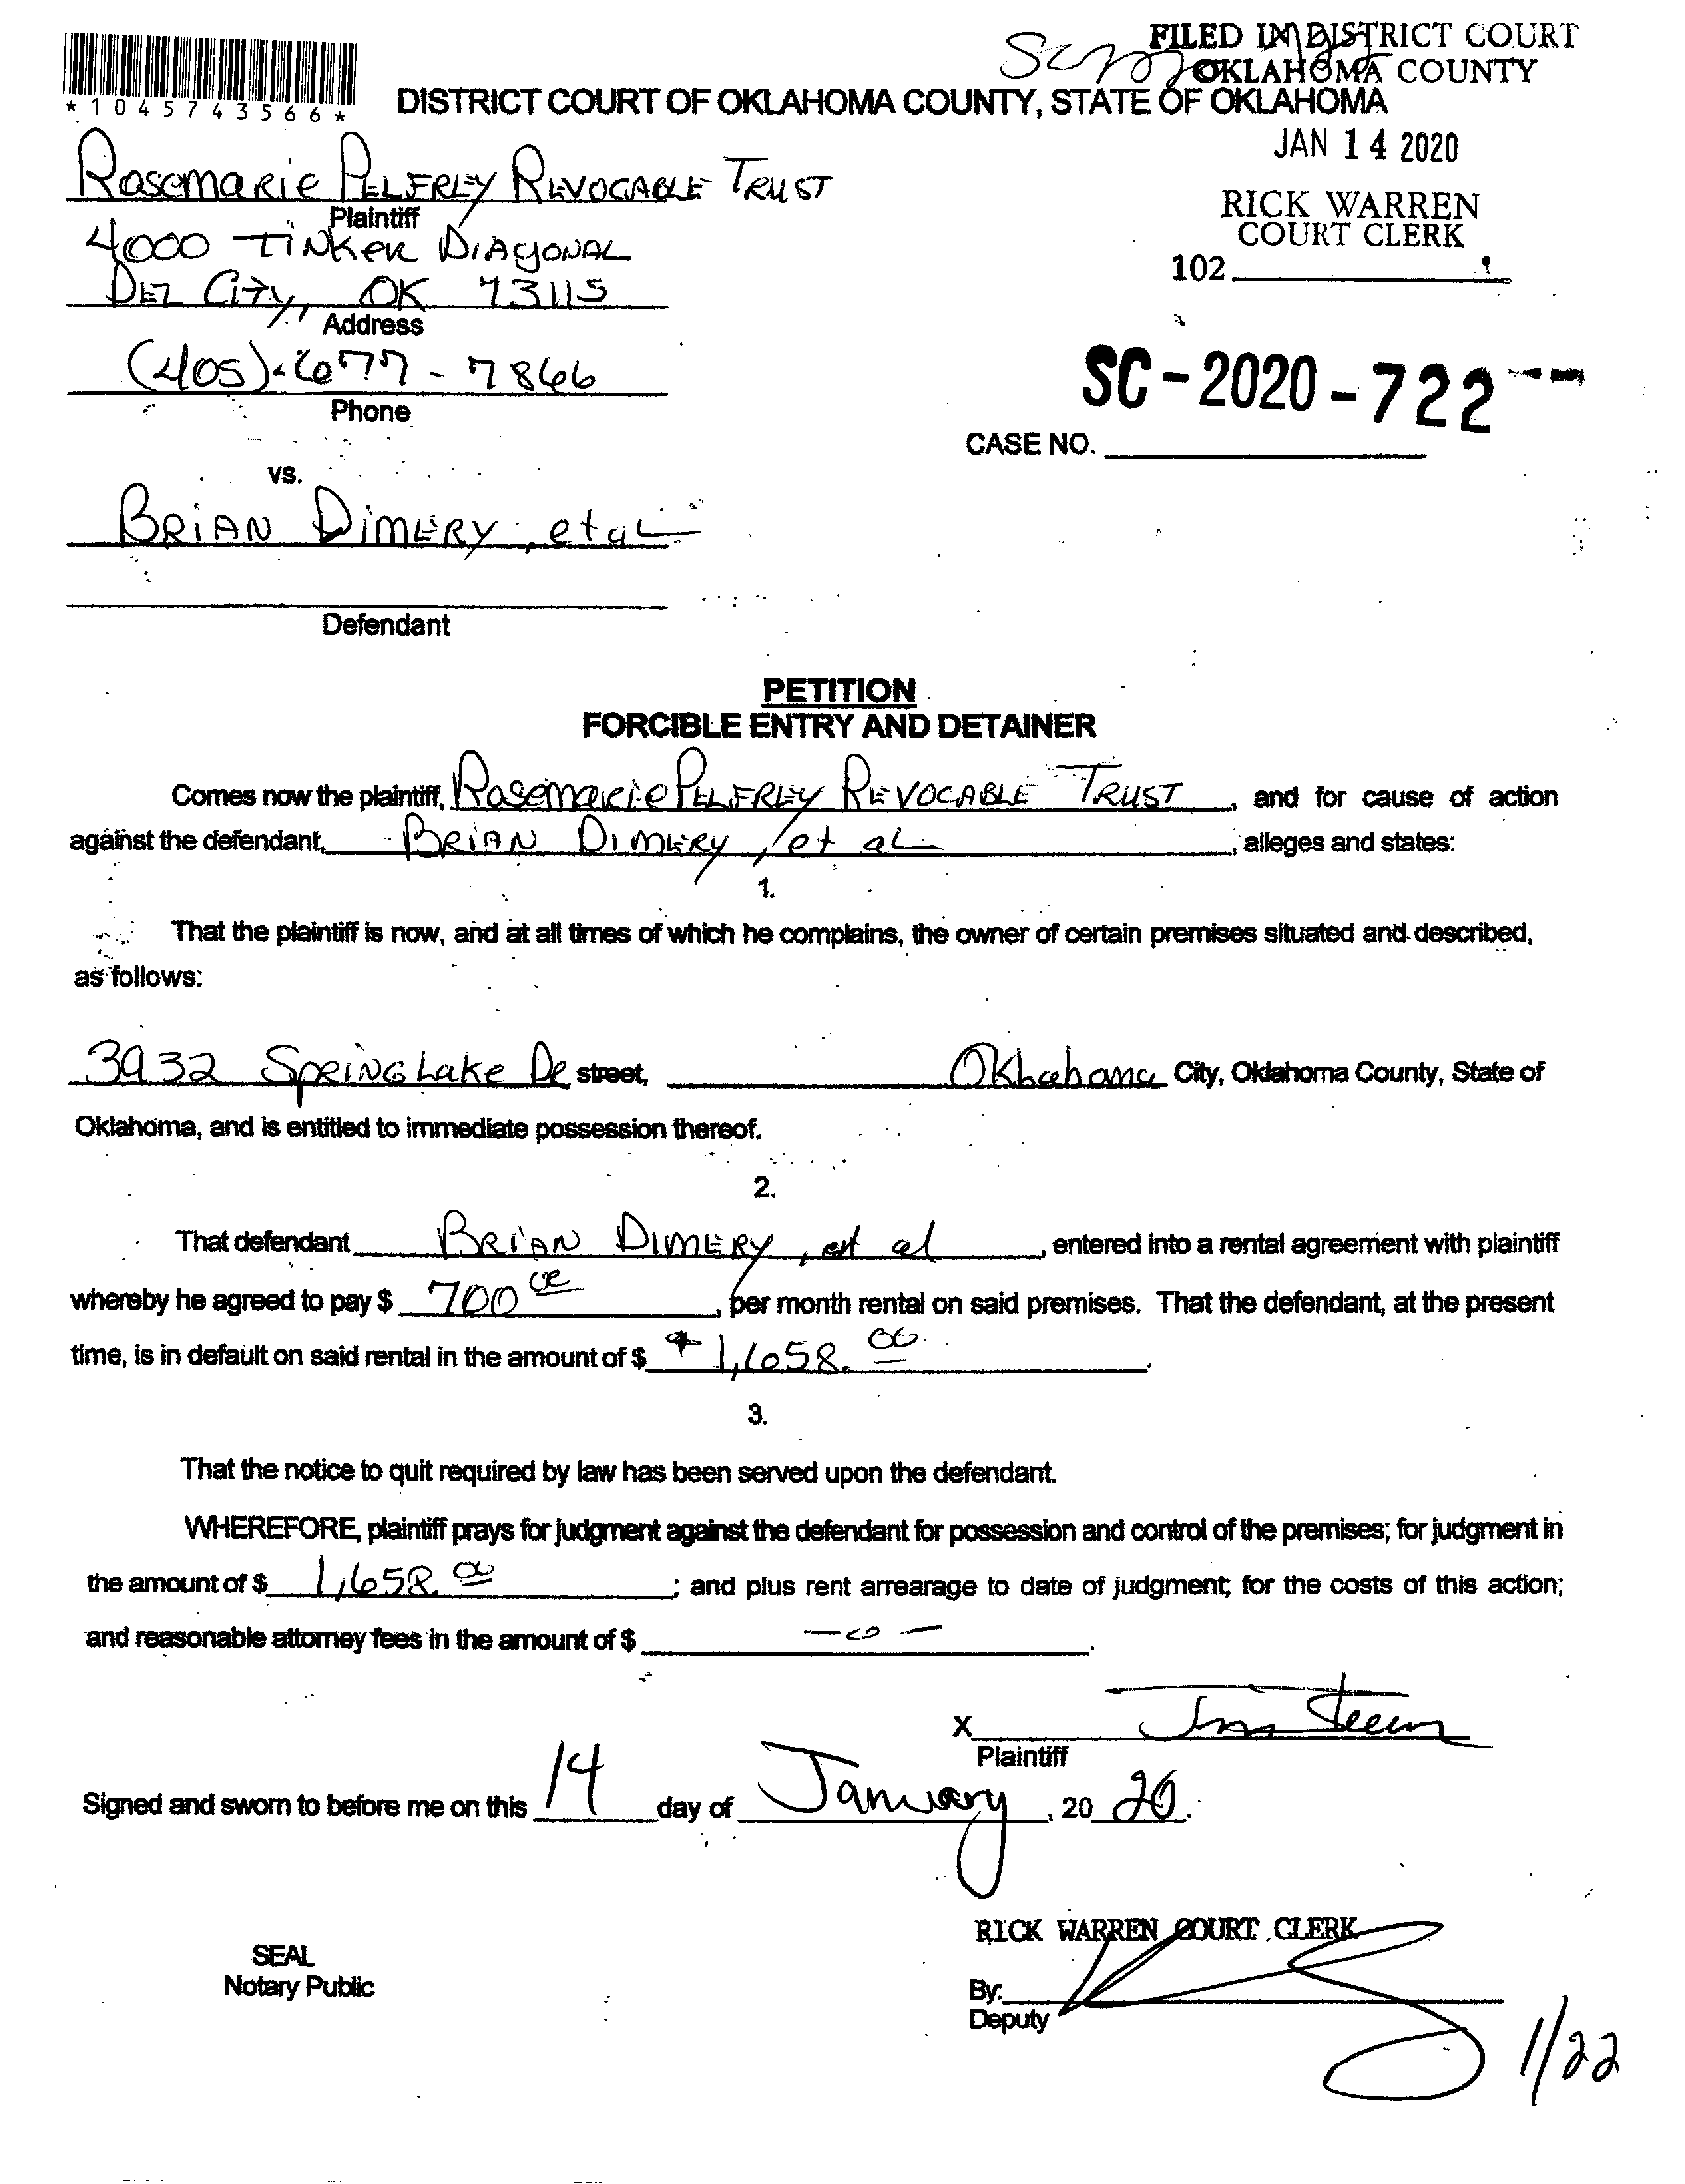 FILED IN DISTRICT COURT
OKLAHOMA COUNTY
*1045743566*
DISTRICT COURT OF OKLAHOMA COUNTY, STATE OF OKLAHOMA
JAN 14 2020
Rosemarie Pelfrey Revocable Trust
Plaintiff
RICK WARREN
COURT CLERK
4000 Tinker Diagonal
102
Del City, OK 73115
Address
(405)-677-7866
Phone
SC-2020-722
CASE NO.
vs.
Brian Dimery, et al
Defendant
PETITION
FORCIBLE ENTRY AND DETAINER
Comes now the plaintiff, Rosemarie Pelfrey Revocable Trust, and for cause of action
against the defendant, Brian Dimery, et al, alleges and states:
1.
That the plaintiff is now, and at all times of which he complains, the owner of certain premises situated and described,
as follows:
3932 Spring Lake Dr street, Oklahoma City, Oklahoma County, State of
Oklahoma, and is entitled to immediate possession thereof.
2.
That defendant Brian Dimery, et al, entered into a rental agreement with plaintiff
whereby he agreed to pay $ 700 00, per month rental on said premises. That the defendant, at the present
time, is in default on said rental in the amount of $ $1,658.00.
3.
That the notice to quit required by law has been served upon the defendant.
WHEREFORE, plaintiff prays for judgment against the defendant for possession and control of the premises; for judgment in
the amount of $ 1,658.00; and plus rent arrearage to date of judgment; for the costs of this action;
and reasonable attorney fees in the amount of $ -0-.
X
Plaintiff
Signed and sworn to before me on this 14 day of January, 20 20.
RICK WARREN COURT CLERK
SEAL
Notary Public
By:
Deputy
1/22